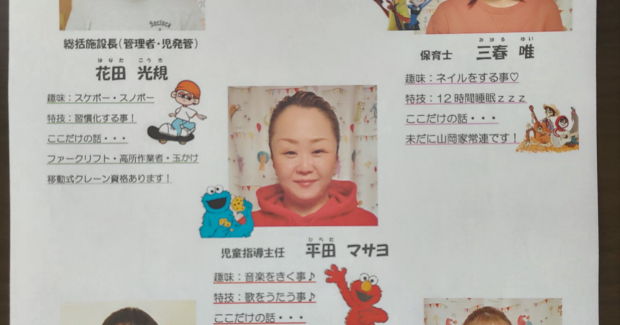 総括施設長(管理者・児発管)
はなだ こうき
花田 光規
趣味：スケボー・スノボー
特技：習慣化する事！
ここだけの話・・・
フォークリフト・高所作業者・玉かけ
移動式クレーン資格あります！
みはる ゆい
保育士 三春 唯
趣味：ネイルをする事♡
特技：12時間睡眠ｚｚｚ
ここだけの話・・・
未だに山岡家常連です！
ひらた
児童指導主任 平田 マサヨ
趣味：音楽をきく事♪
特技：歌をうたう事♪
ここだけの話・・・